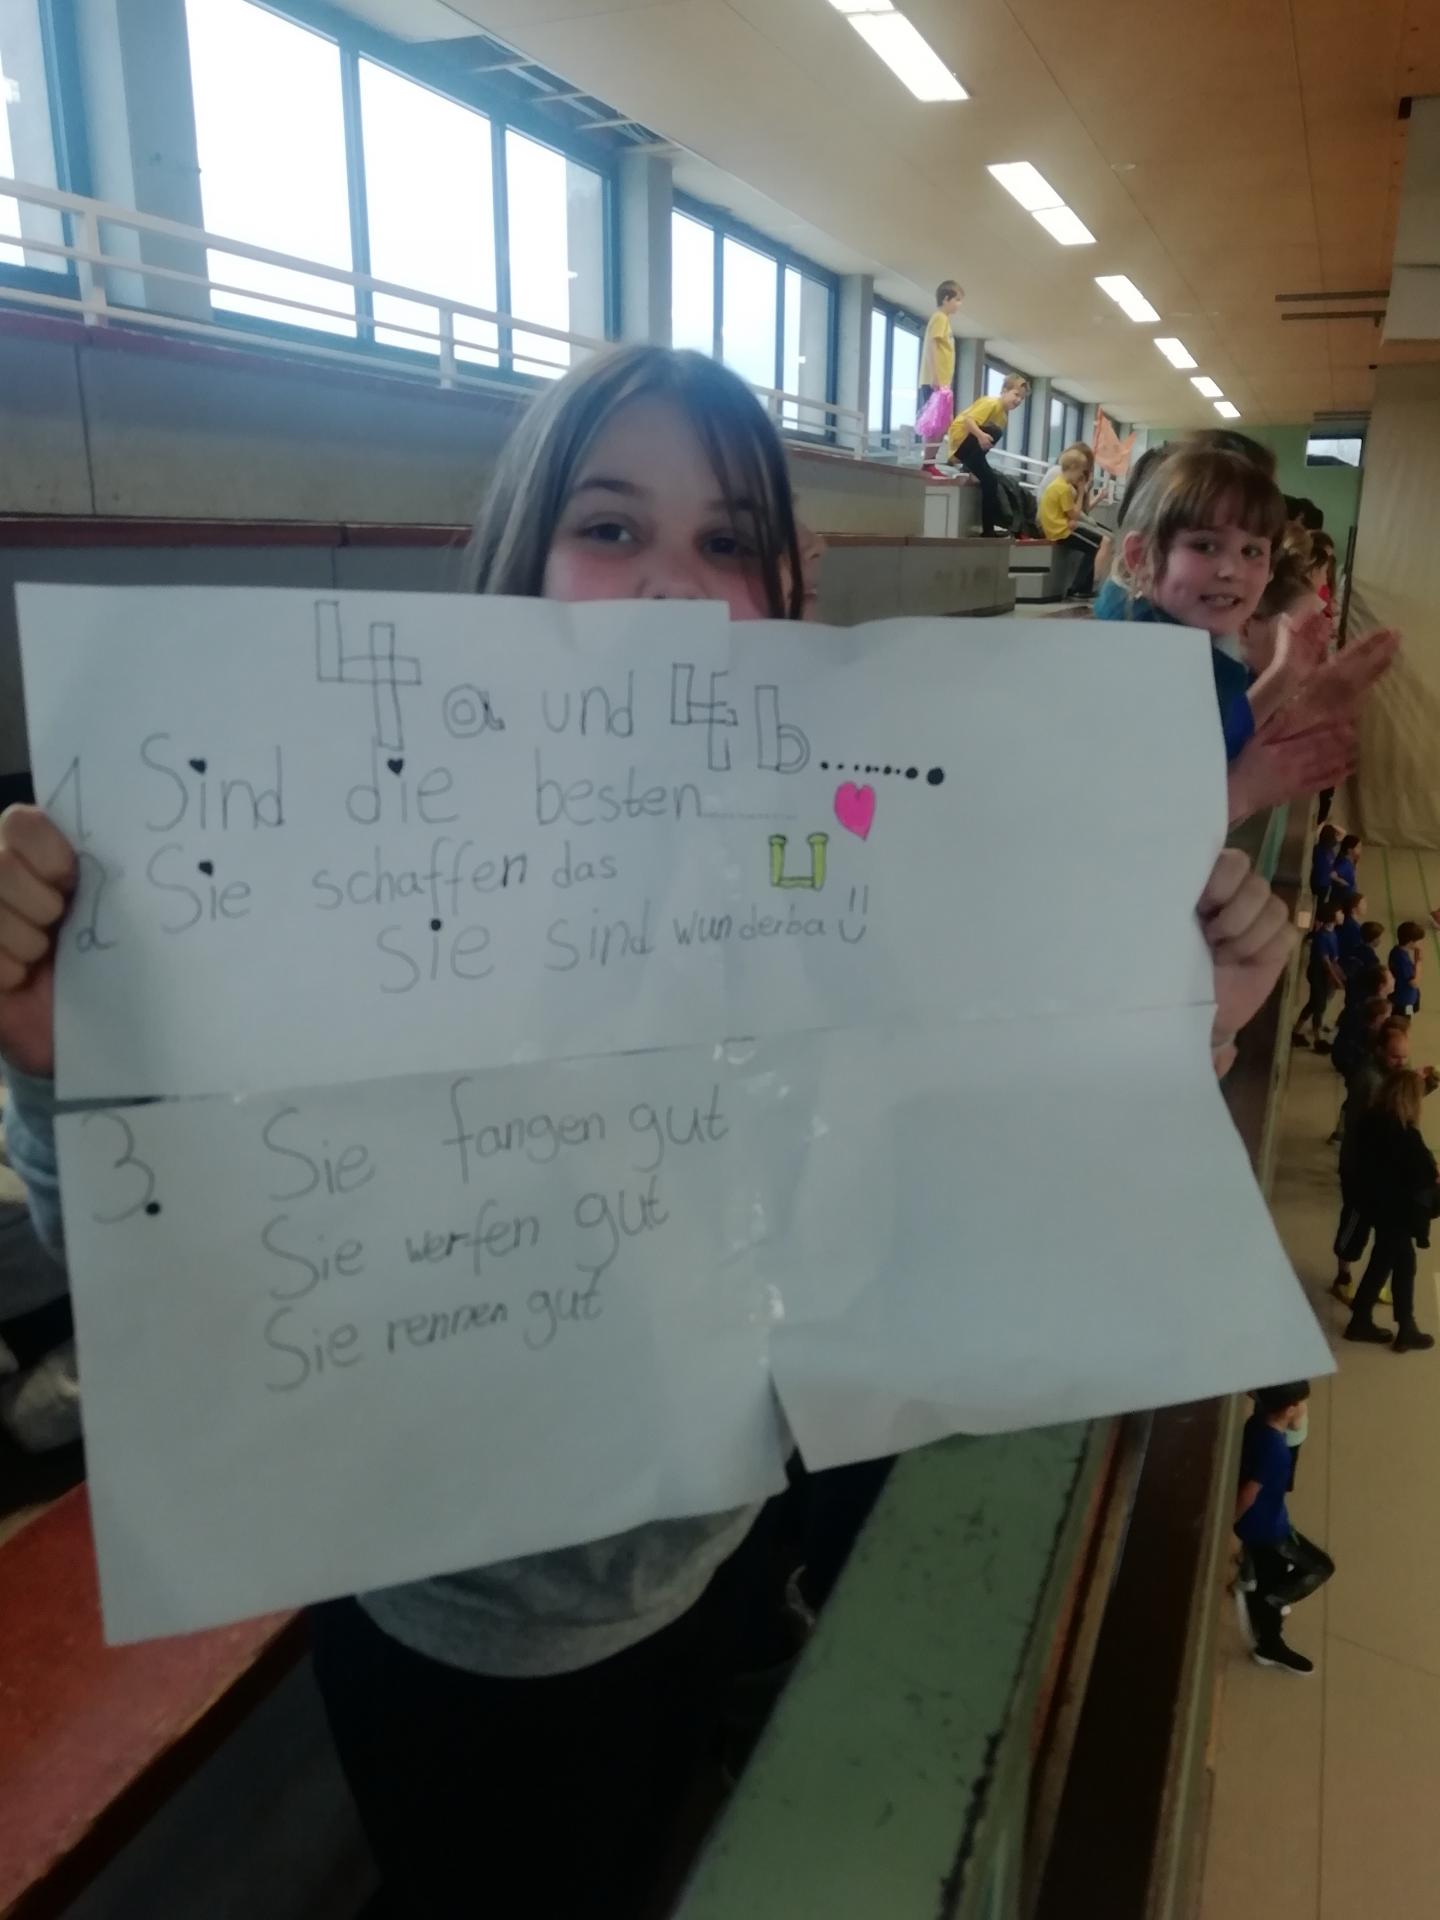 4a und 4b........
1 Sind die besten........
2 Sie schaffen das
sie sind wunderba
3. Sie fangen gut
Sie werfen gut
Sie rennen gut